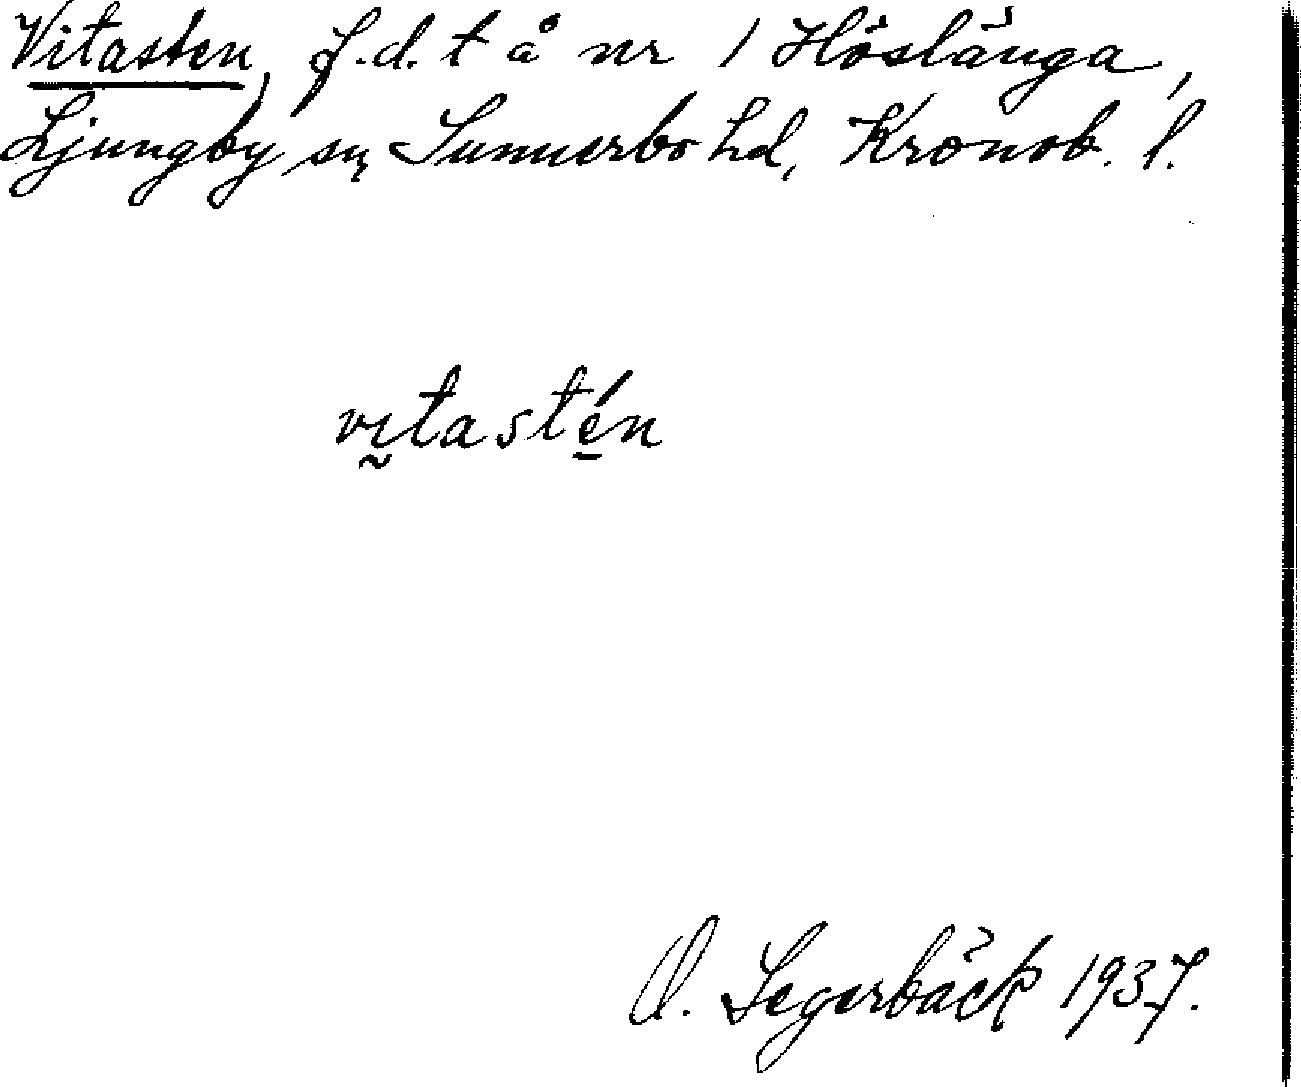 Vitasten, f.d. t å nr 1 Höslänga,
Ljungby sn, Sunnerbo hd, Kronob. l.
vitastén
O. Segerbäck 1937.